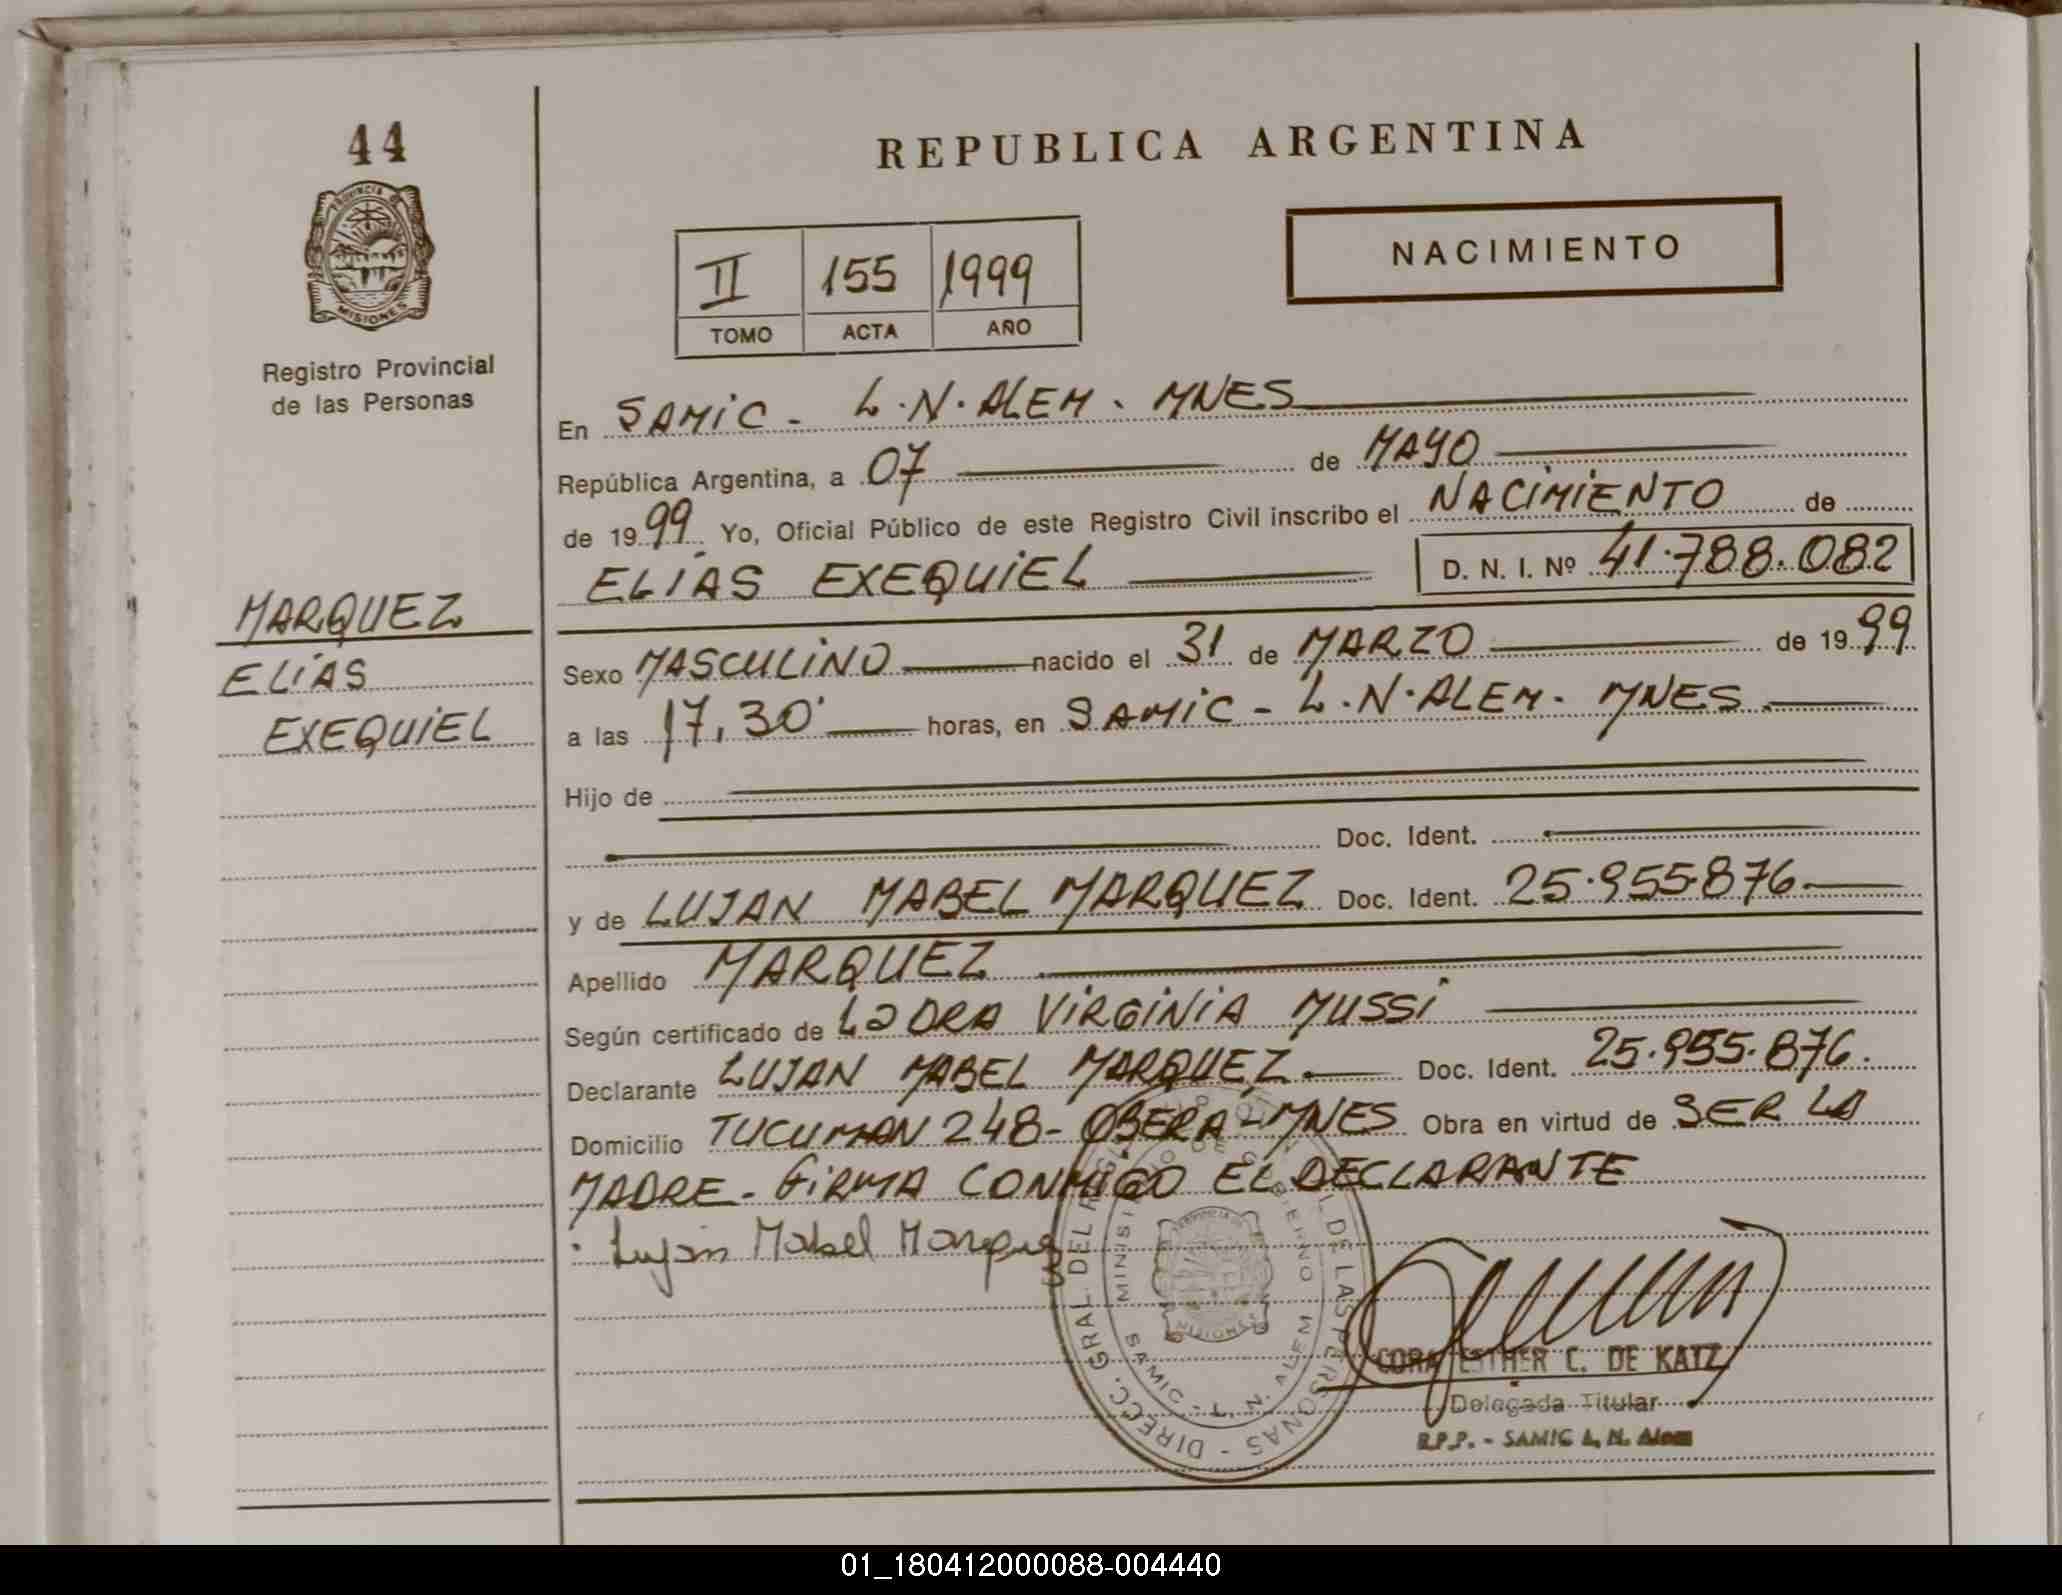 44
PROVINCIA DE
MISIONES
Registro Provincial
de las Personas
MARQUEZ
ELIAS
EXEQUIEL
REPUBLICA ARGENTINA
II 155 1999
TOMO ACTA AÑO
NACIMIENTO
En SAMIC - L.N.ALEM. MNES
República Argentina, a 07 de MAYO
de 1999 Yo, Oficial Público de este Registro Civil inscribo el NACIMIENTO de
ELIAS EXEQUIEL D. N. I. Nº 41.788.082
Sexo MASCULINO nacido el 31 de MARZO de 1999
a las 17,30' horas, en SAMIC - L.N.ALEM. MNES.
Hijo de
Doc. Ident.
y de LUJAN MABEL MARQUEZ Doc. Ident. 25.955.876.
Apellido MARQUEZ
Según certificado de LA DRA VIRGINIA MUSSI
Declarante LUJAN MABEL MARQUEZ. Doc. Ident. 25.955.876.
Domicilio TUCUMAN 248- OBERA - MNES Obra en virtud de SER LA
MADRE. FIRMA CONMIGO EL DECLARANTE
Lujan Mabel Marquez
CORA ESTHER C. DE KATZ
Delegada Titular
R.P.P. - SAMIC L. N. Alem
01_180412000088-004440